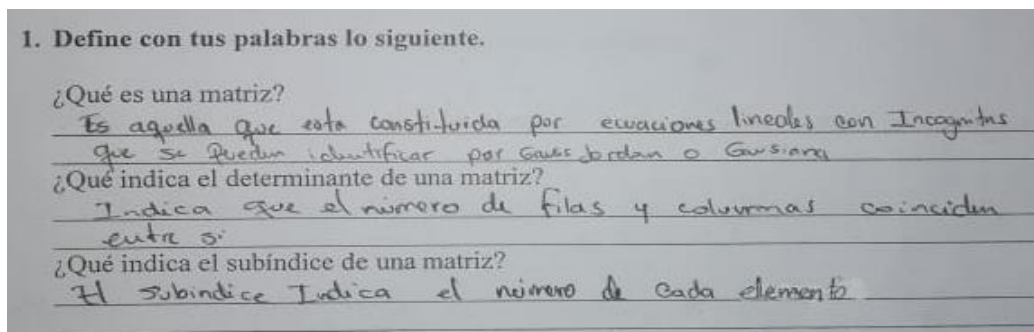 1. Define con tus palabras lo siguiente.
¿Qué es una matriz?
Es aquella que esta constituida por ecuaciones lineales con Incognitas
que se Pueden identificar por Gauss Jordan o Gausiana
¿Qué indica el determinante de una matriz?
Indica que el número de filas y columnas coinciden
entre si
¿Qué indica el subíndice de una matriz?
El Subindice Indica el número de cada elemento